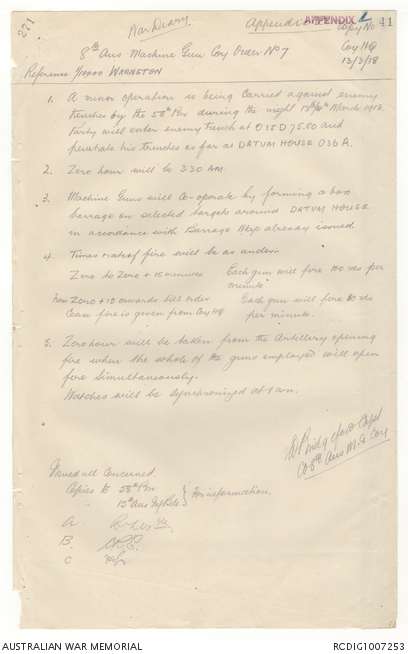 271
War Diary
Appendix
APPENDIX 2
41
Copy No
8th Aus Machine Gun Coy Order No 7
Coy HQ
13/3/18
Reference 1/10000 WARNETON
1. A minor operation is being carried against enemy
trenches by the 58th Bn during the night March 1918
Party will enter enemy trench at O18D75.60 and
penetrate his trenches as far as DATUM HOUSE O36A.
2. Zero hour will be 3.30 AM.
3. Machine Guns will co-operate by forming a box
barrage on selected targets around DATUM HOUSE
in accordance with Barrage Map already issued
4. Times & rates of fire will be as under.
Zero to Zero + 15 minutes Each gun will fire 100 rds per
minute
from Zero + 15 onwards till order Each gun will fire 80 rds
Cease fire is given from Coy HQ per minute.
5. Zero hour will be taken from the Artillery opening
fire when the whole of the guns employed will open
fire simultaneously.
Watches will be synchronized at 1 am.
Capt
OC 8th Aus M.G. Coy
Issued all concerned.
Copies to 58th Bn
" 15th Aus Inf Bde } For information.
A
B.
C
AUSTRALIAN WAR MEMORIAL
RCDIG1007253